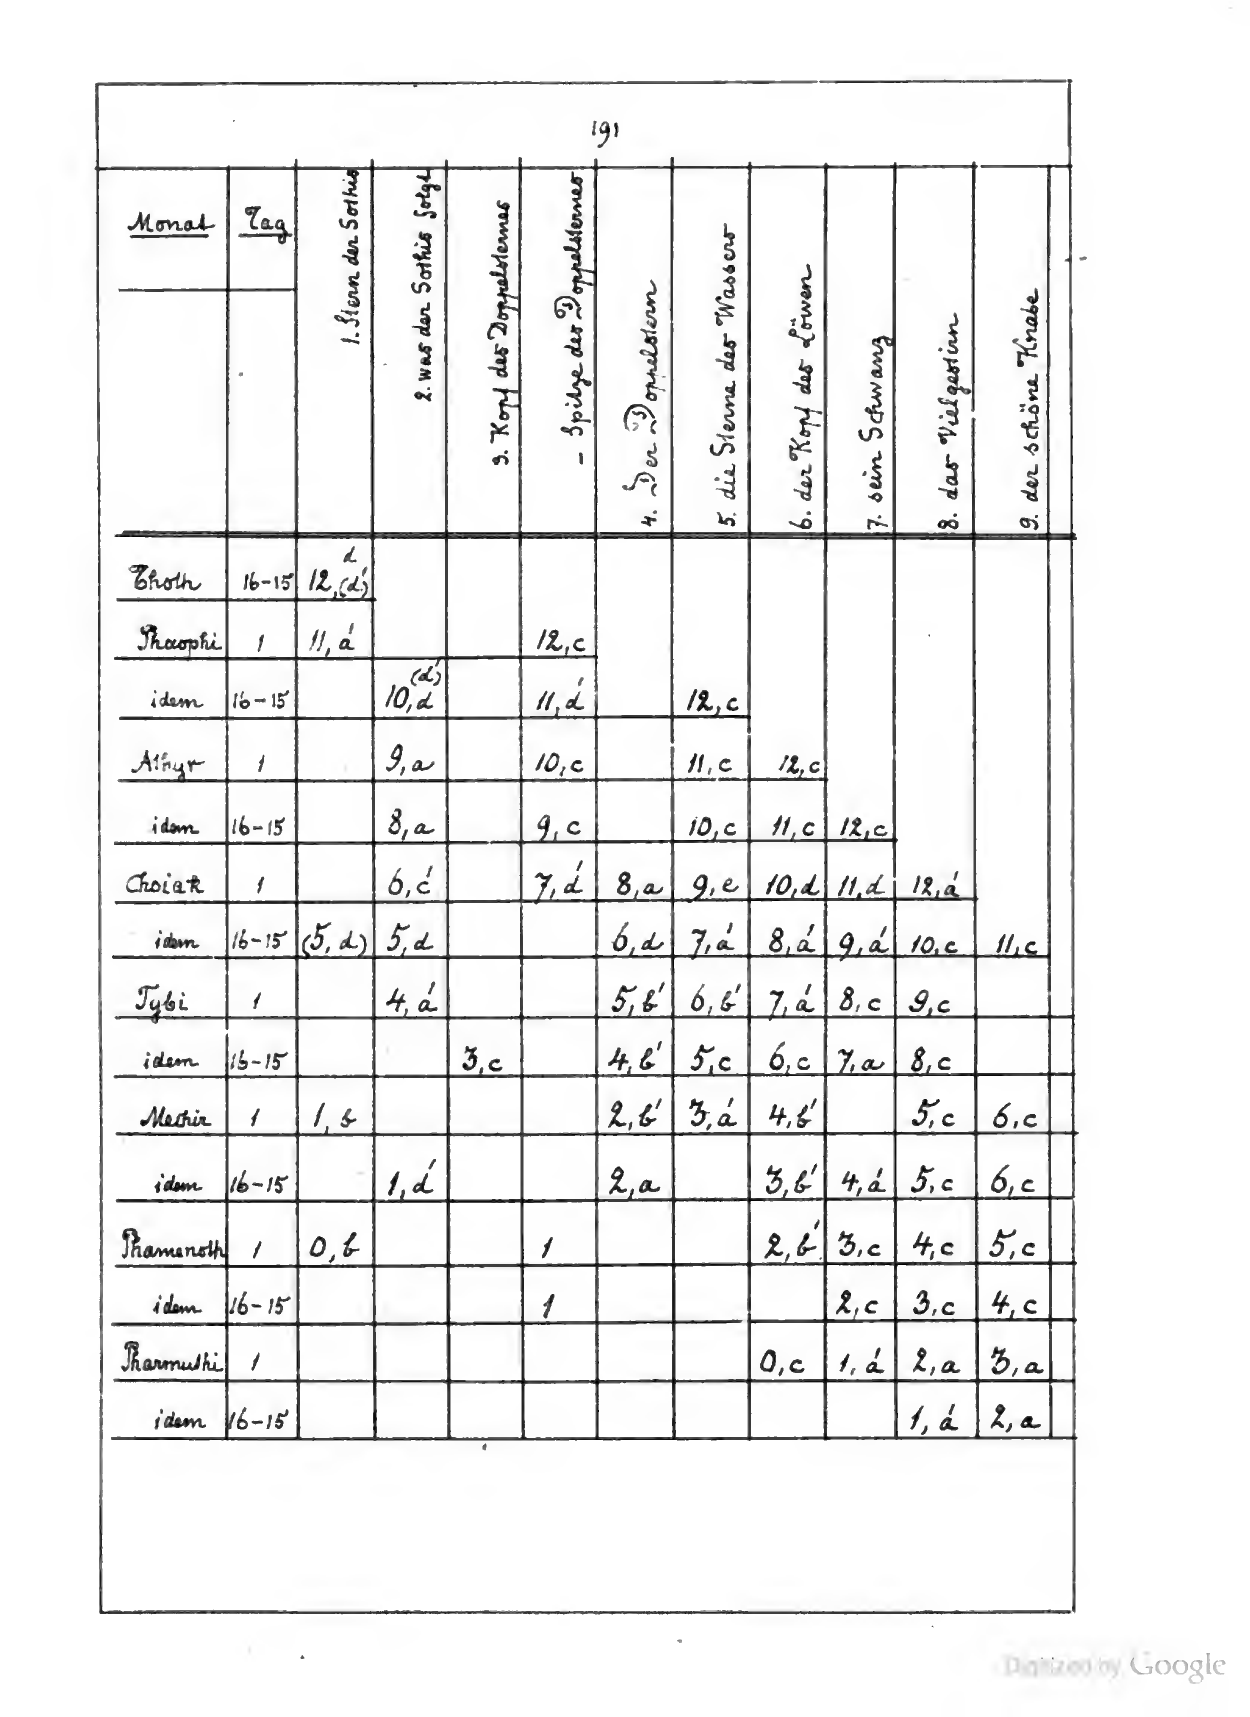 191
Monat Tag 1. Stern der Sothis 2. was der Sothis folgt 3. Kopf des Doppelsternes – Spitze des Doppelsternes 4. Der Doppelstern 5. die Sterne des Wassers 6. der Kopf des Löwen 7. sein Schwanz 8. das Vielgestirn 9. der schöne Knabe
Thoth 16-15 12, d (d́)
Phaophi 1 11, á 12, c
idem 16-15 10, d (d́) 11, d́ 12, c
Athyr 1 9, a 10, c 11, c 12, c
idem 16-15 8, a 9, c 10, c 11, c 12, c
Choiak 1 6, ć 7, d́ 8, a 9, e 10, d 11, d 12, á
idem 16-15 (5, d) 5, d 6, d 7, á 8, á 9, á 10, c 11, c
Tybi 1 4, á 5, b' 6, b' 7, á 8, c 9, c
idem 16-15 3, c 4, b' 5, c 6, c 7, a 8, c
Mechir 1 1, b 2, b' 3, á 4, b' 5, c 6, c
idem 16-15 1, d́ 2, a 3, b' 4, á 5, c 6, c
Phamenoth 1 0, b 1 2, b' 3, c 4, c 5, c
idem 16-15 1 2, c 3, c 4, c
Pharmuthi 1 0, c 1, á 2, a 3, a
idem 16-15 1, á 2, a
Digitized by Google